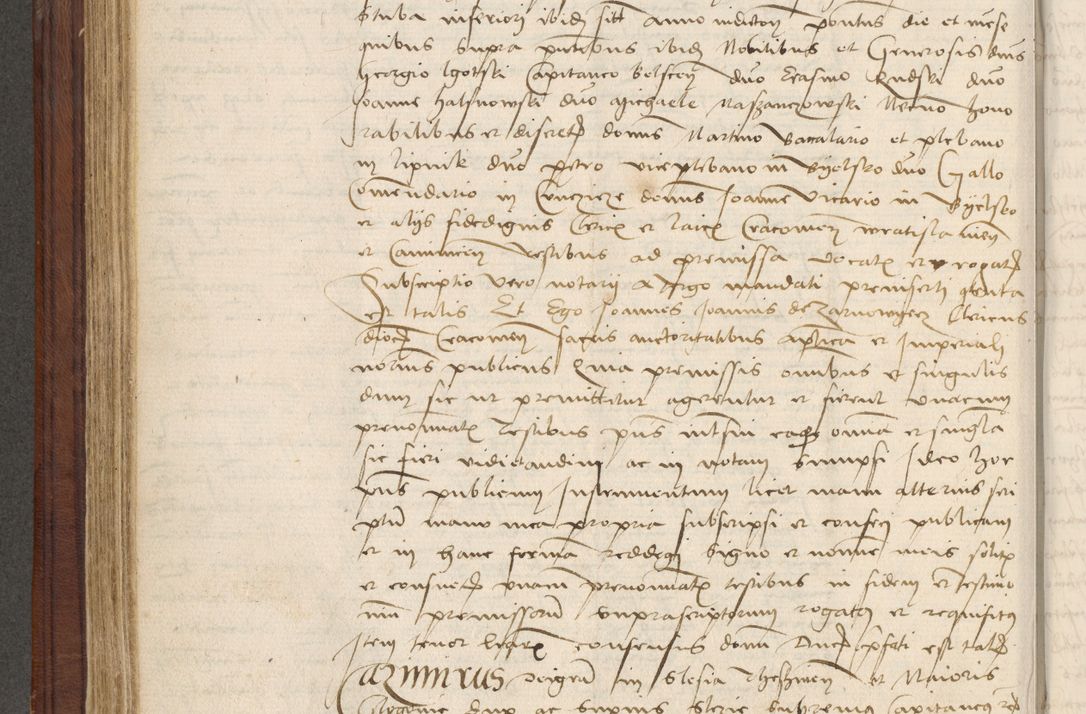 Stuba inferiori ibidem sitt anno indicton pontus die et mense
quibus supra pntibus ibidem Nobilibus et Generosis dnis
Georgio Lgotski Capitaneo Belscen dno Erasmo Rudski dno
Joanne Halsnowski dno Michaele Naszanczowski Necno Hono
rabilibus et discretis domis Martino Baccalario et plebano
in Lipnik dno petro viceplebano in Byelsko dno Gallo
Comendario in domno Joanne vicario in Byelsko
et alijs fidedignis Clericis et laicis Cracovien wratislavien
et Caminen testibus ad premissa vocatis et rogatis
Subscriptio vero notarii a tergo mandati preinserti
est talis Et Ego Joannes Joannis de Zarnowyecz Clericus
dioc Cracovien sacris auctoritatibus aplica et Imperiali
notarius publicus Quia premissis omnibus et singulis
dum sic ut premittitur agerentur et fierent unacum
prenominatis testibus pns intfui eaque omnia et singula
sic fieri vidi et audivi ac in notam sumpsi Ideo hoc
pns publicum Instrumentum licet manu alterius scri
ptum manu mea propria subscripsi et confeci publicavi
et in hanc formam redegi signo et nomine meis solitis
et consuetis unacum prenominatis testibus in fidem et testimo
nium premissorum suprascriptorum rogatus et requisitus
Item tenor consensus domini Ducis prefati est talis
Cazimirus dei gra in Slesia Theszinen et Maioris
Glogovie Dux ac supmus Slezie Supremus Capitaneus